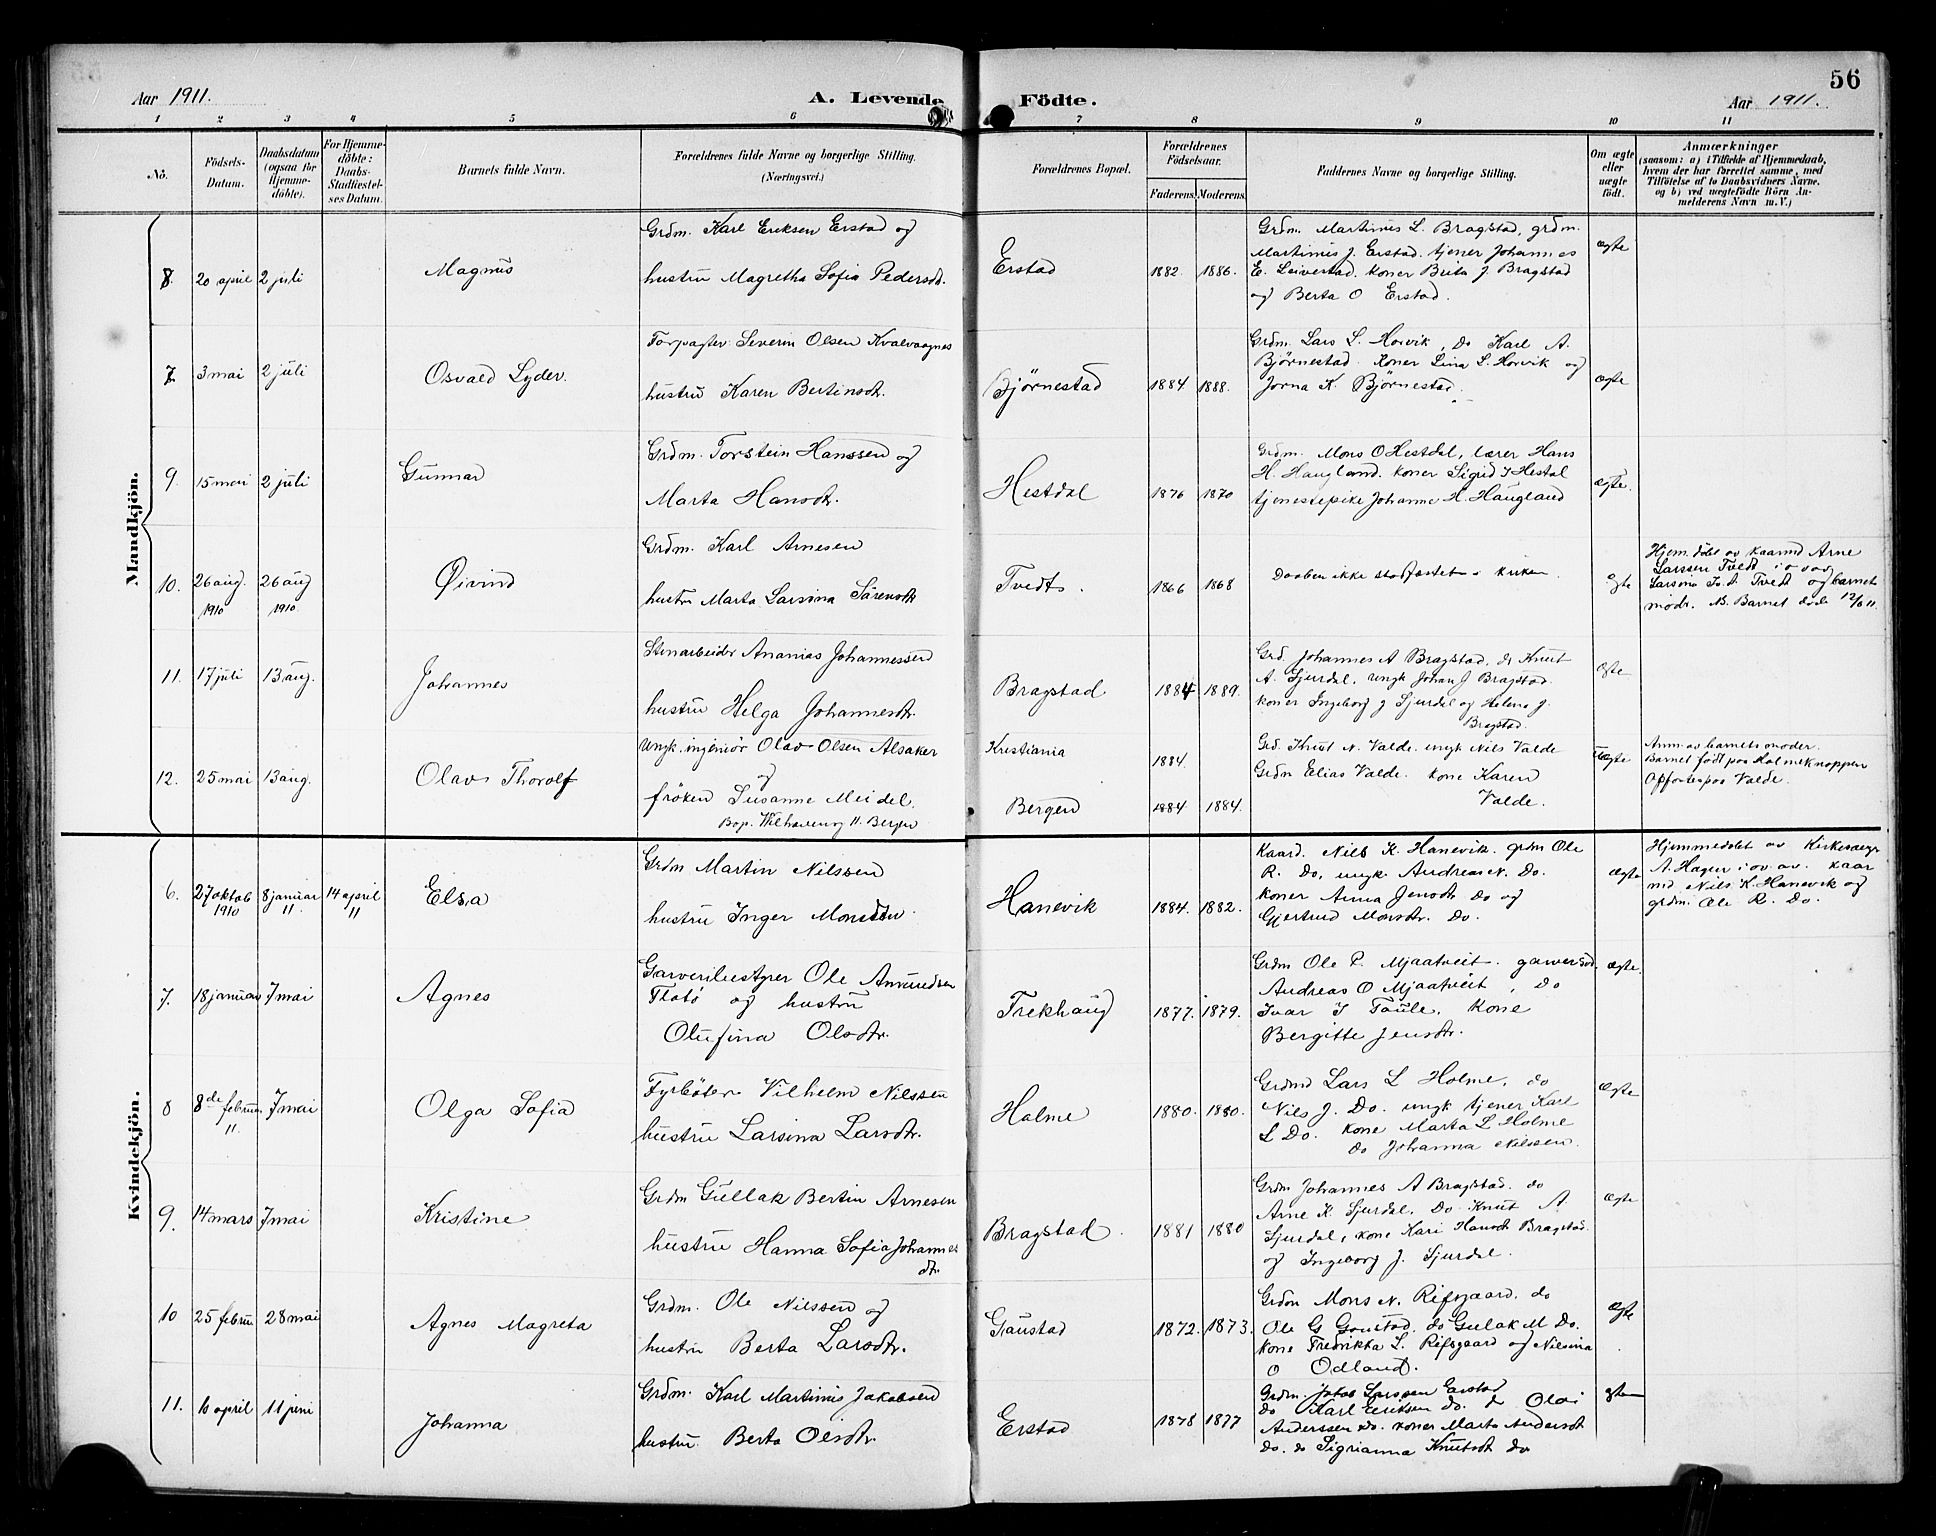 56
Aar 1911.
A. Levende Födte.
Aar 1911.
1 2 3 4 5 6 7 8 9 10 11
No.
Födsels-Datum.
Daabsdatum (ogsaa for Hjemmedöbte).
For Hjemmedöbte: Daabs-Stadfæstelses Datum.
Barnets fulde Navn.
Forældrenes fulde Navne og borgerlige Stilling.
(Næringsvei.)
Forældrenes Bopæl.
Forældrenes Födselsaar.
Faderens. Moderens.
Faddernes Navne og borgerlige Stilling.
Om ægte eller uægte födt.
Anmærkninger
(saasom: a) i Tilfælde af Hjemmedaab, hvem der har forrettet samme, med Tilföielse af to Daabsvidners Navne, og b) ved uegtefödte Börn Anmelderens Navn m. V.)
Mandkjön.
8. 20 april 2 juli
Magnus
Grdm. Karl Eriksen Erstad og
hustru Magretha Sofia Pedersdtr.
Erstad
1882. 1886.
Grdm. Martinus L. Bragstad, grdm.
Martinus J. Erstad. tjener Johannes
E. Leivestad. koner Brita J Bragstad
og Berta O Erstad.
ægte
7. 3 mai 2 juli
Osvald Lyder.
Forpagter Severin Olsen Kvalvaagnes
hustru Karen Bertinsdtr.
Björnestad
1884 1888.
Grdm. Lars L. Horvik, do Karl A.
Björnestad koner Lina L. Horvik og
Jorna K. Björnestad.
ægte
9. 15 mai 2 juli
Gunnar
Grdm. Torstein Hanssen og
Marta Hansdtr.
Hestdal
1876 1870
Grdm. Mons O Hestdal, lærer Hans
H. Haugland. koner Sigrid J Hestal
tjenestepike Johanne H. Haugland
ægte.
10. 26 aug. 1910 26 aug 1910.
Öivind
Grdm. Karl Arnesen
hustru Marta Larsina Särensdtr
Tvedt.
1866 1868
Daaben ikke stadfæstet i kirken.
ægte
Hjem.döbt av kaarmd Arne
Larssen Tvedt i o. v. av
Larsina Tvedt og barnets
modr. NB. Barnet döde 12/6 11.
11. 17 juli 13 aug.
Johannes
Stenarbeider Ananias Johannessen
hustru Helga Johannesdtr.
Bragstad
1884 1889.
Grd. Johannes A Bragstad, do Knut
A. Sjurdal, ungk Johan J Bragstad.
koner Ingeborg J Sjurdal og Helene J.
Bragstad.
ægte
12. 25 mai 13 aug.
Olav Thorolf
Ungk. ingeniör Olav Olsen Alsaker
og
fröken Susanne Meidel.
Bop. 11. Bergen
Kristiania
Bergen
1884.
1884 1884.
Grd. Knut N. Valde. ungk Nils Valde
Grdm Elias Valde. kone Karen
Valde.
Uægte
Anm. av barnets moder.
Barnet födt paa Holmeknappen
Opfostes paa Valde.
Kvindekjön.
6. 27 oktob 1910 8 januar 11 14 april 11
Elsa
Grdm Martin Nilssen
hustru Inger Monsdtr.
Hanevik
1884. 1882.
Kaard. Nils K. Hanevik. grdm Ole
R. Do, ungk. Andreas N. Do.
koner Anna Jensdtr Do og
Gjertrud Monsdtr. Do.
ægte
Hjemmedöbt av Kirkesanger
A. Hagen i o v. av. kaar
md Nils K. Hanevik og
grdm. Ole R. Do.
7. 18 januar 7 mai
Agnes
Garveribestyrer Ole Amundsen
Flatö og hustru
Olufina Olsdtr.
Frekhaug
1877. 1879.
Grdm Ole P. Mjaatveit. garver
Andreas O Mjaatveit, Do
Ivar I Taule, Kone
Bergitte Jensdtr.
ægte.
8 8de februar 11. 7 mai
Olga Sofia
Fyrböter Vilhelm Nilssen
hustru Larsina Larsdtr.
Holme
1880. 1880.
Grdmd Lars L Holme, do
Nils J. Do. ungk tjener Karl
L Do. kone Marta L Holme
do Johanna Nilssen.
ægte
9. 14 mars 7 mai
Kristine
Grdm Gullak Bertin Arnesen
hustru Hanna Sofia Johannes
dtr.
Bragstad.
1881 1880
Grdm Johannes A Bragstad. do
Arne K. Sjurdal, Do Knut A.
Sjurdal, kone Kari Hansdtr Bragstad.
og Ingeborg J. Sjurdal.
ægte
10 25 febru 28 mai
Agnes Magreta
Grdm. Ole Nilssen og
hustru Berta Larsdtr.
Gaustad
1872. 1873.
Grdm Mons N. Rifsgaard. do
Ole G Goustad. do Gulak M Do.
kone Fredrikka L. Rifsgaard og Nilsina
O Odland.
ægte
11. 10 april 11 juni
Johanna
Grdm. Karl Martinus Jakobsen
hustru. Berta Olsdtr.
Erstad
1878 1877
Grdm. Larssen Erstad
do Karl Eriksen do. do Olai
Anderssen do. koner Marta Andersdt
do. do Sigrianna Knutsdt do
ægte